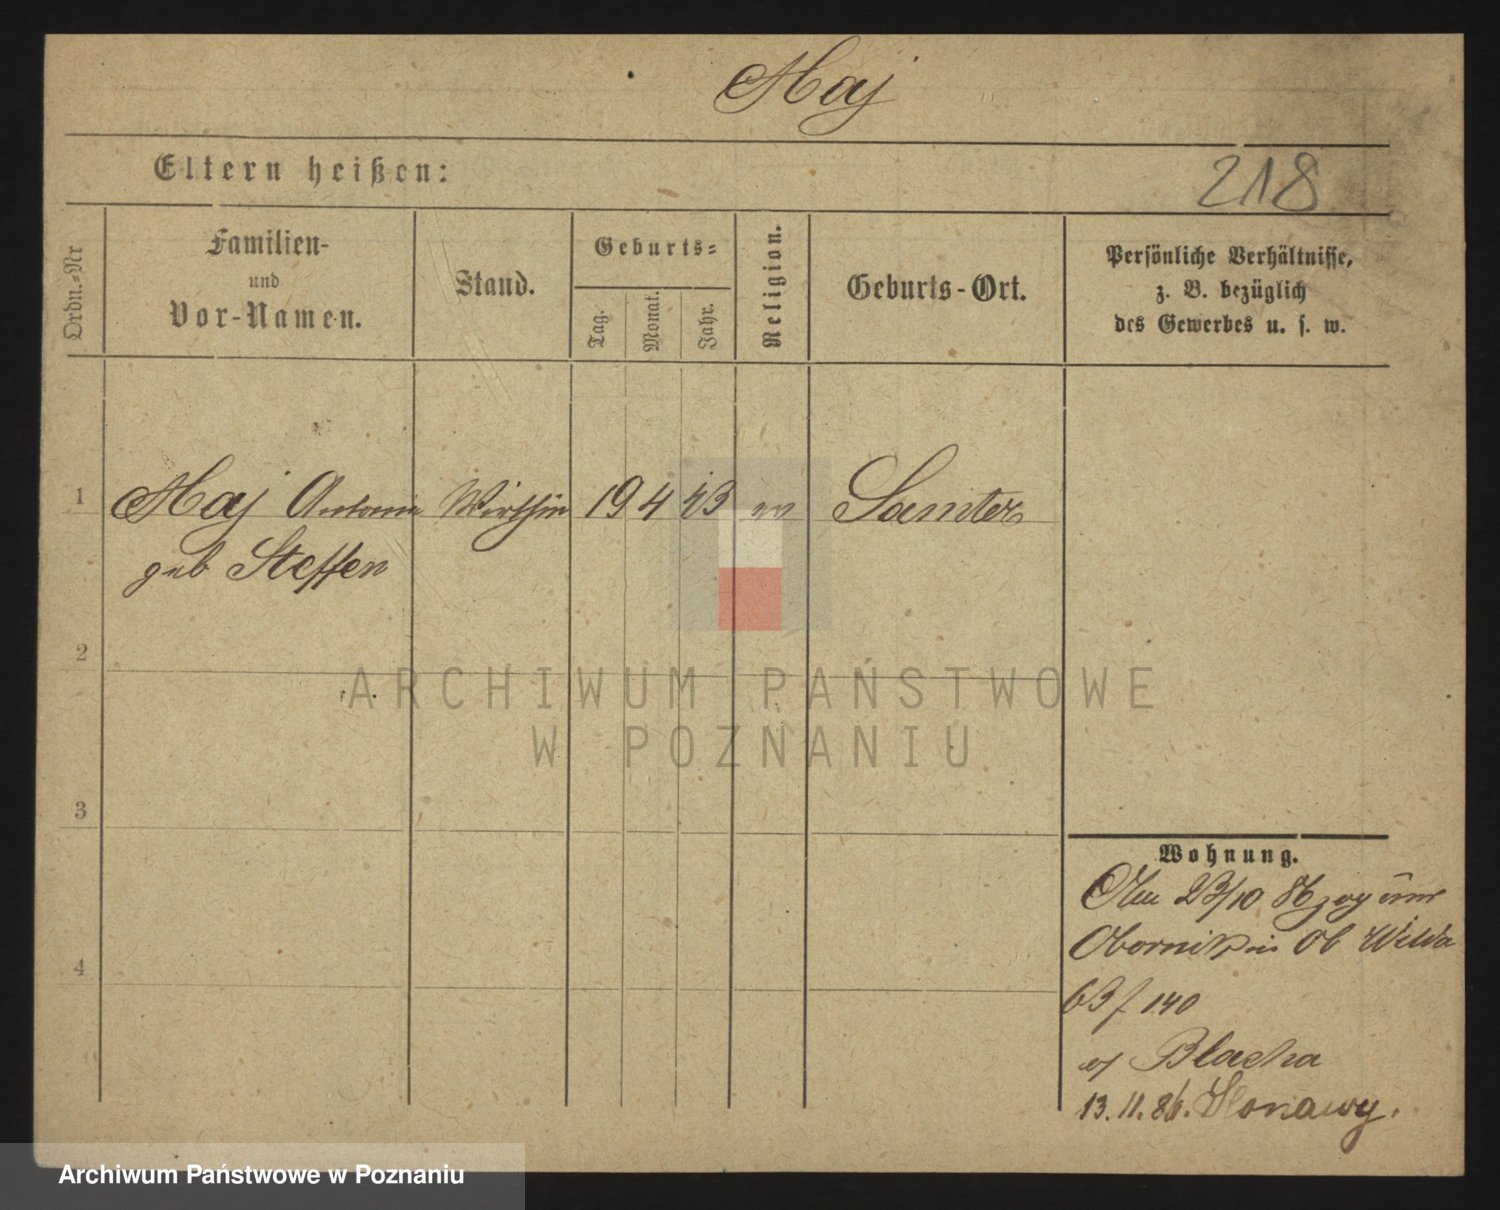 Maj
Eltern heißen:
218
Ordn.=Nr
Familien-
und
Vor-Namen.
Stand.
Geburts=
Tag.
Monat.
Jahr.
Religion.
Geburts-Ort.
Persönliche Verhältnisse,
z. B. bezüglich
des Gewerbes u. s. w.
1 Maj Antonie Wirthin 19 4 43 Samter
geb Steffen
2
ARCHIWUM PAŃSTWOWE
W POZNANIU
3
Wohnung.
23/10 86
Obornik in Ob Wilda
4
63 f 140
Blacha
13. 11. 86. Slonawy.
Archiwum Państwowe w Poznaniu